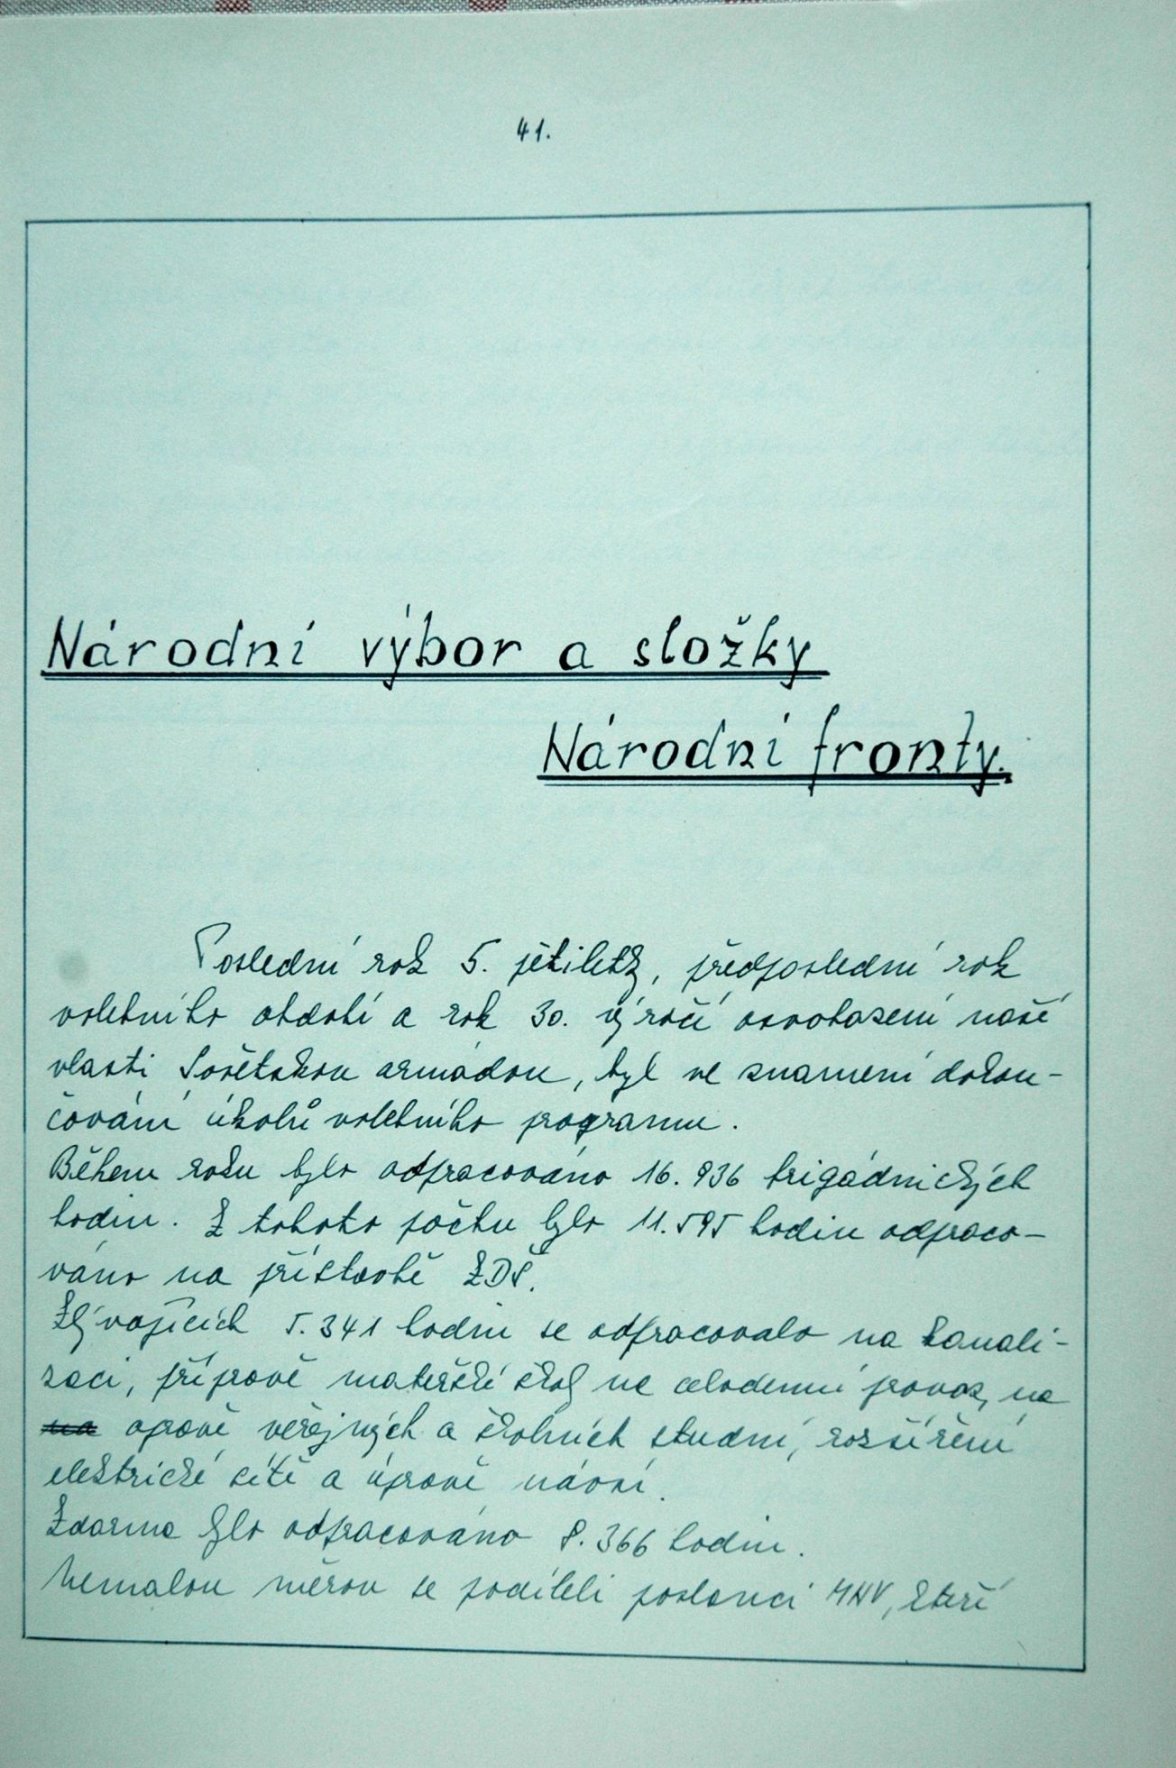 41.
Národní výbor a složky
Národní fronty.
Poslední rok 5. pětiletky, předposlední rok
volebního období a rok 30. výročí osvobození naší
vlasti Sovětskou armádou, byl ve znamení dokon-
čování úkolů volebního programu.
Během roku bylo odpracováno 16.936 brigádnických
hodin. Z tohoto počtu bylo 11.595 hodin odpraco-
váno na přístavbě ZDŠ.
Zbývajících 5.341 hodin se odpracovalo na kanali-
zaci, přípravě mateřské školy na celodenní provoz, na
na opravě veřejných a školních studní, rozšíření
elektrické sítě a úpravě návsí.
Zdarma bylo odpracováno 8.366 hodin.
Nemalou měrou se podíleli poslanci MNV, kteří